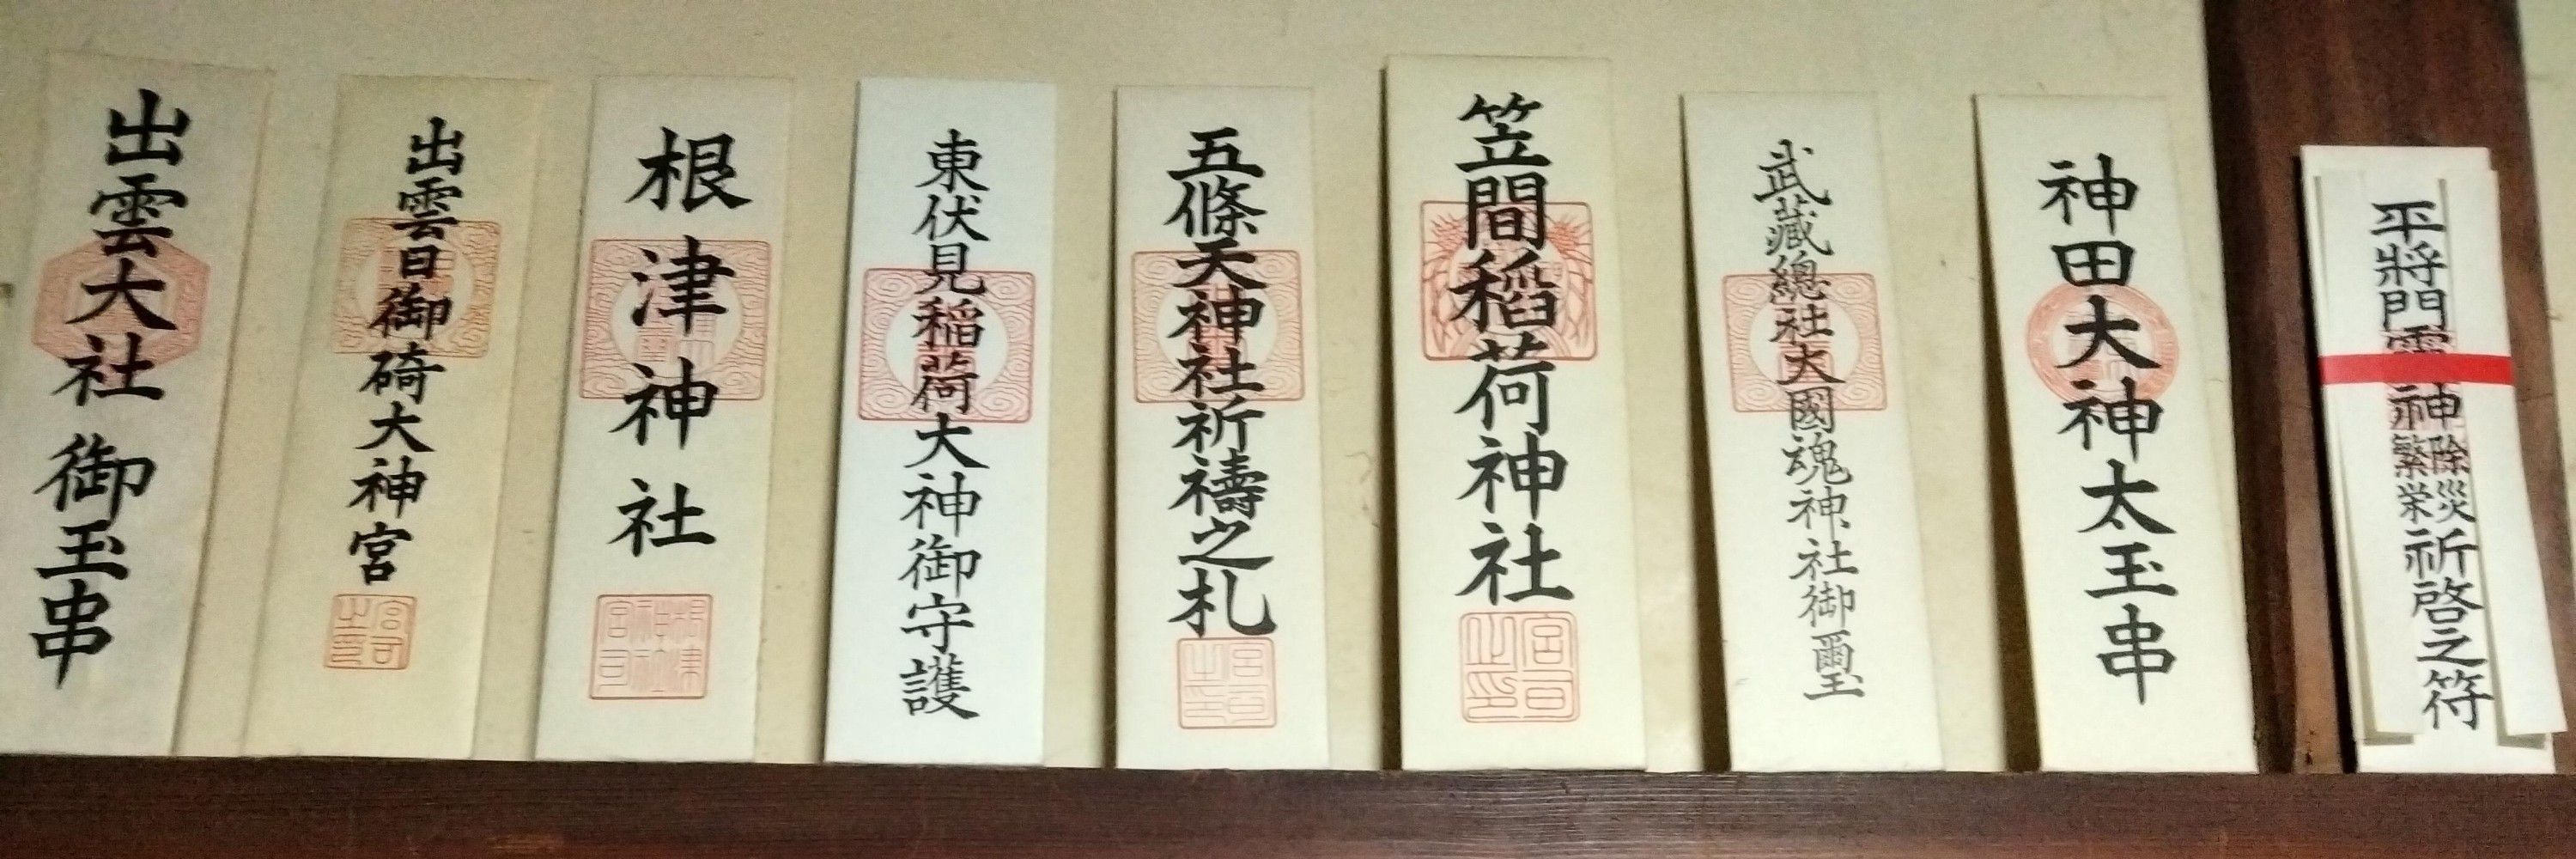 出雲大社御玉串
出雲日御碕大神宮
根津神社
根津神社宮司
東伏見稲荷大神御守護
五條天神社祈禱之札
宮司之印
笠間稲荷神社
宮司之印
武蔵總社大國魂神社御璽
神田大神太玉串
平將門霊神除災繁栄祈啓之符